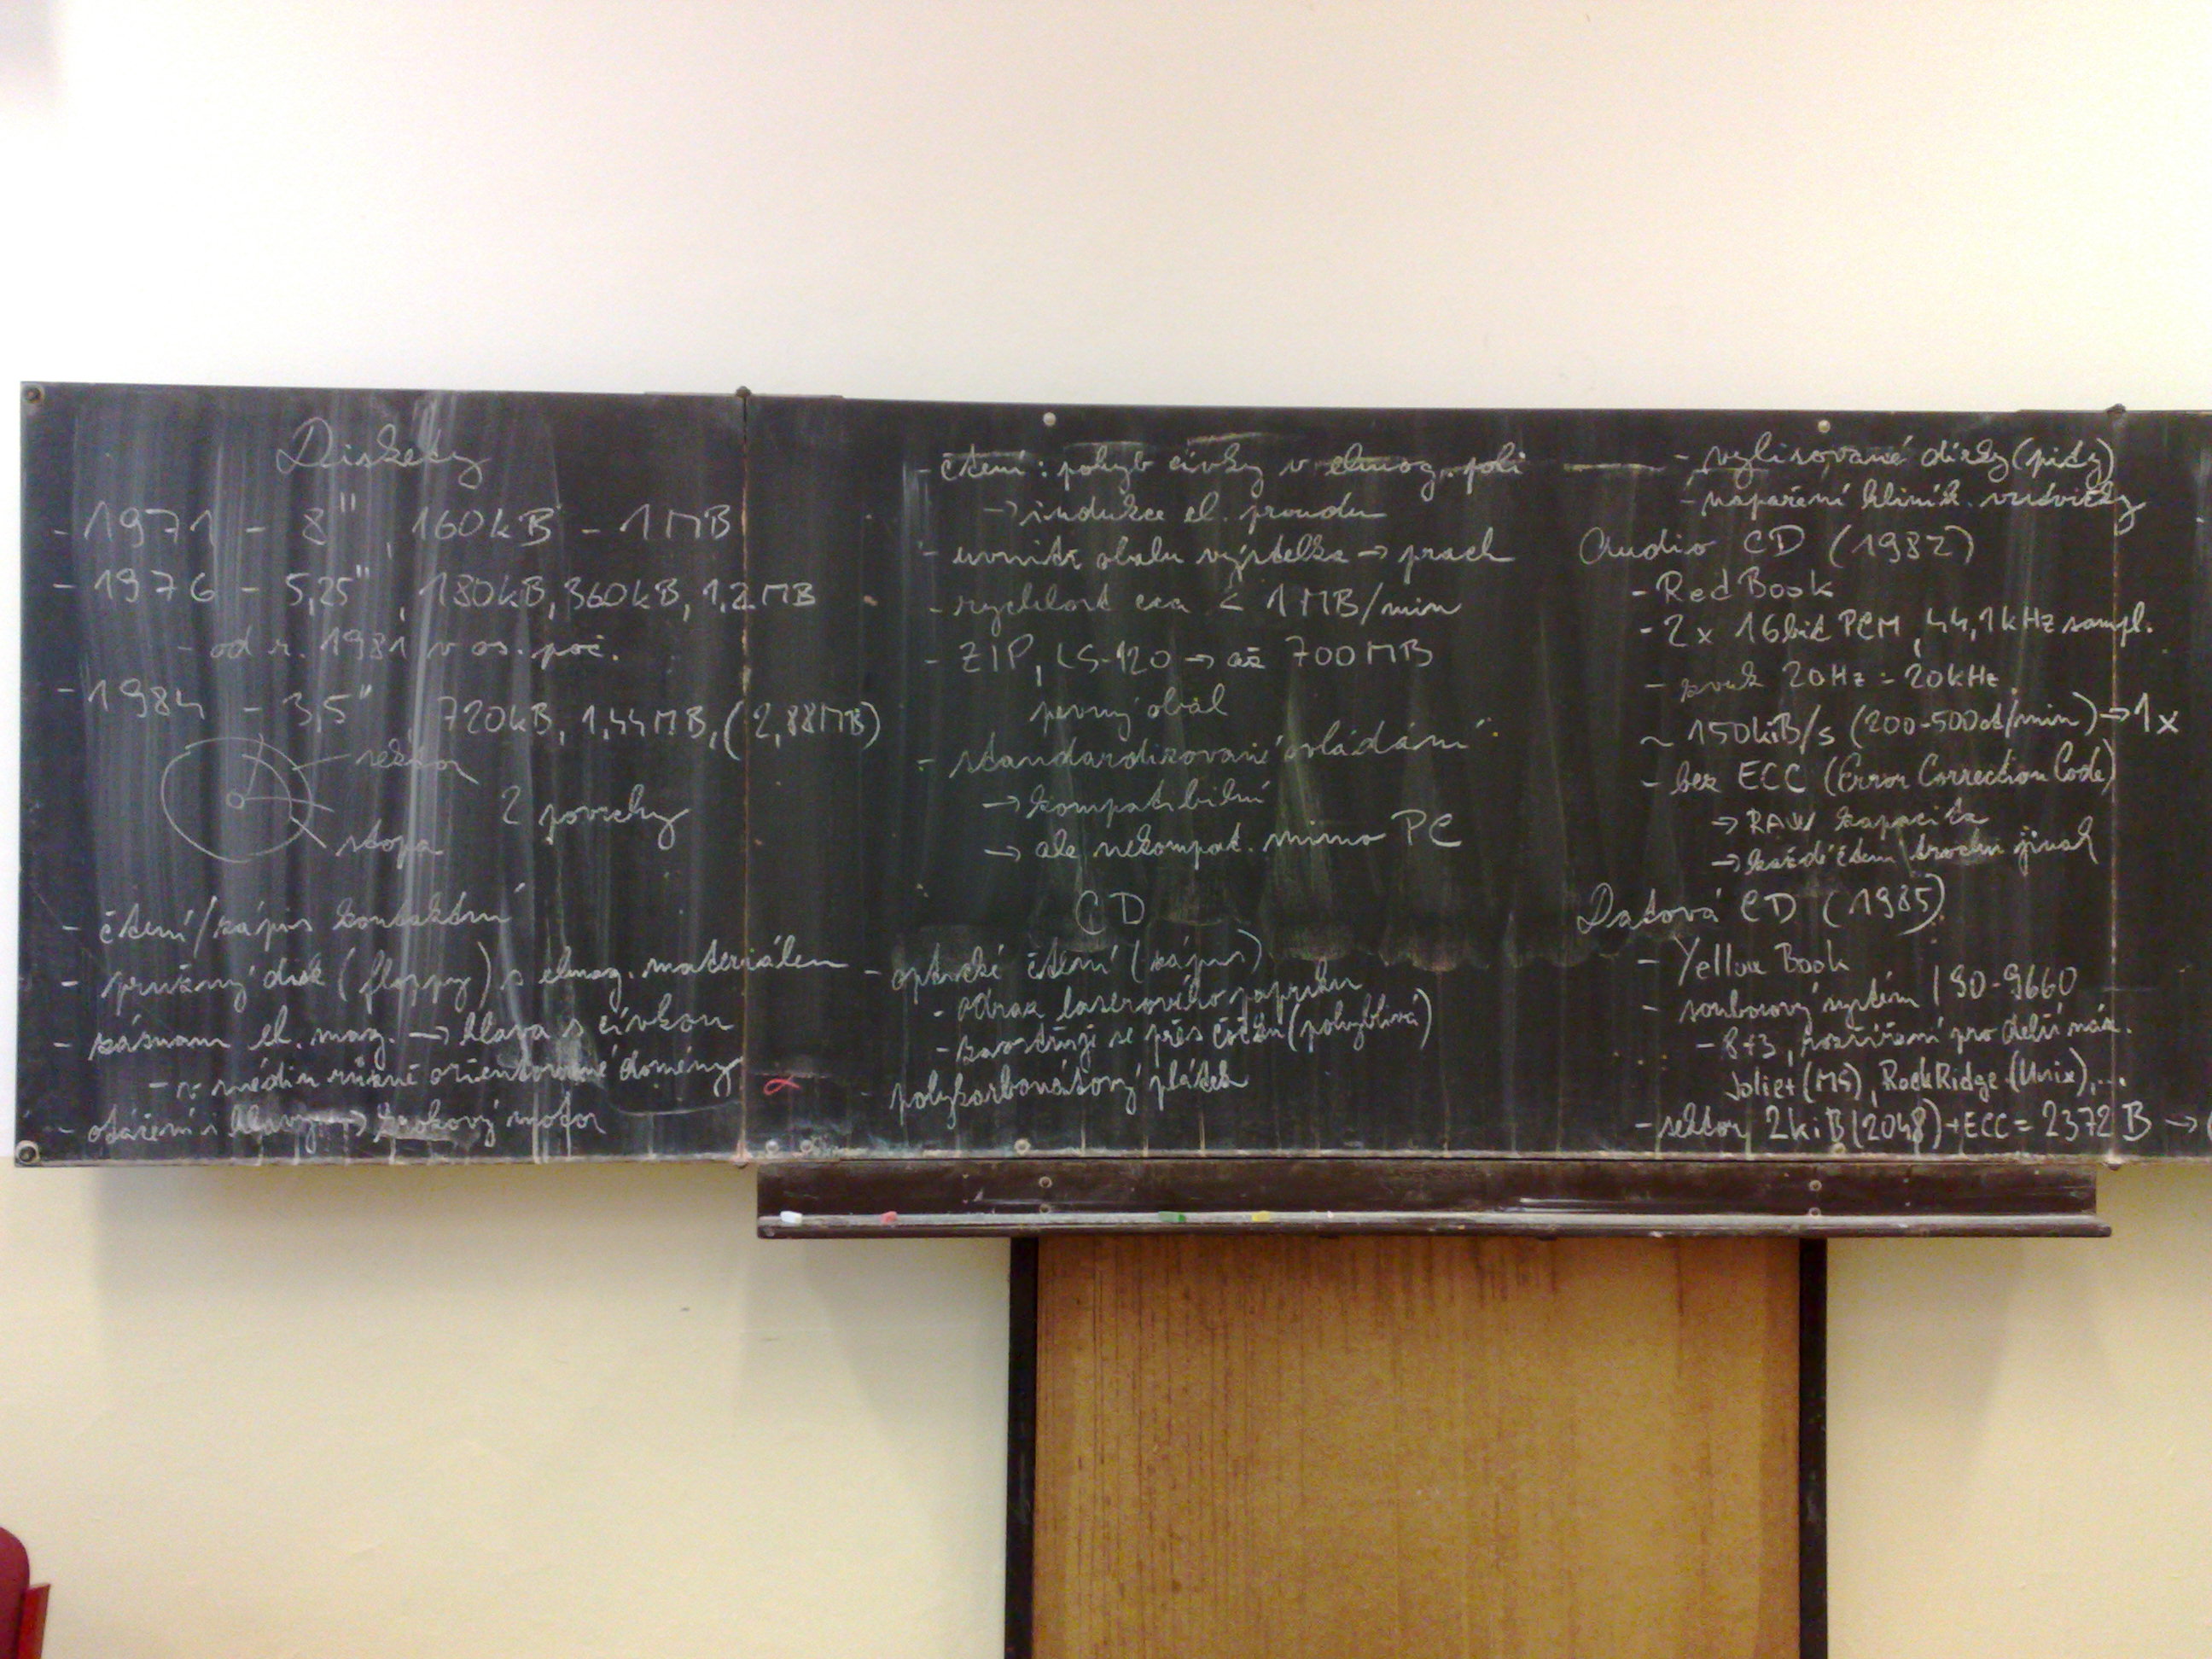 Diskety
- 1971 - 8", 160kB - 1MB
- 1976 - 5,25", 180kB, 360kB, 1,2MB
- od r. 1981 v os. poč.
- 1984 - 3,5", 720kB, 1,44MB, (2,88MB)
sektor
2 povrchy
stopa
- čtení/zápis kontaktní
- pružný disk (floppy) s elmag. materiálem
- záznam el. mag. → hlava s cívkou
- v médiu různě orientované domény
- otáčení i hlavy → krokový motor
- čtení: pohyb cívky v elmag. poli
→ indukce el. proudu
- uvnitř obalu výstelka → prach
- rychlost cca < 1MB/min
- ZIP, LS-120 → až 700MB
pevný obal
- standardizované ovládání
→ kompatibilní
→ ale nekompat. mimo PC
CD
- optické čtení (zápis)
- odraz laserového paprsku
- zaostřuje se přes čočku (pohyblivá)
- polykarbonátový plátek
- vylisované dírky (pity)
- napaření hliník. vrstvičky
Audio CD (1982)
- Red Book
- 2 x 16bit PCM, 44,1kHz sampl.
- zvuk 20Hz - 20kHz
~ 150kiB/s (200-500ot/min) → 1x
- bez ECC (Error Correction Code)
→ RAW kapacita
→ každé čtení trochu jinak
Datová CD (1985)
- Yellow Book
- souborový systém ISO-9660
- 8+3, rozšíření pro delší náz.
Joliet (MS), RockRidge (Unix), ...
- sektory 2kiB (2048) + ECC = 2372 B →